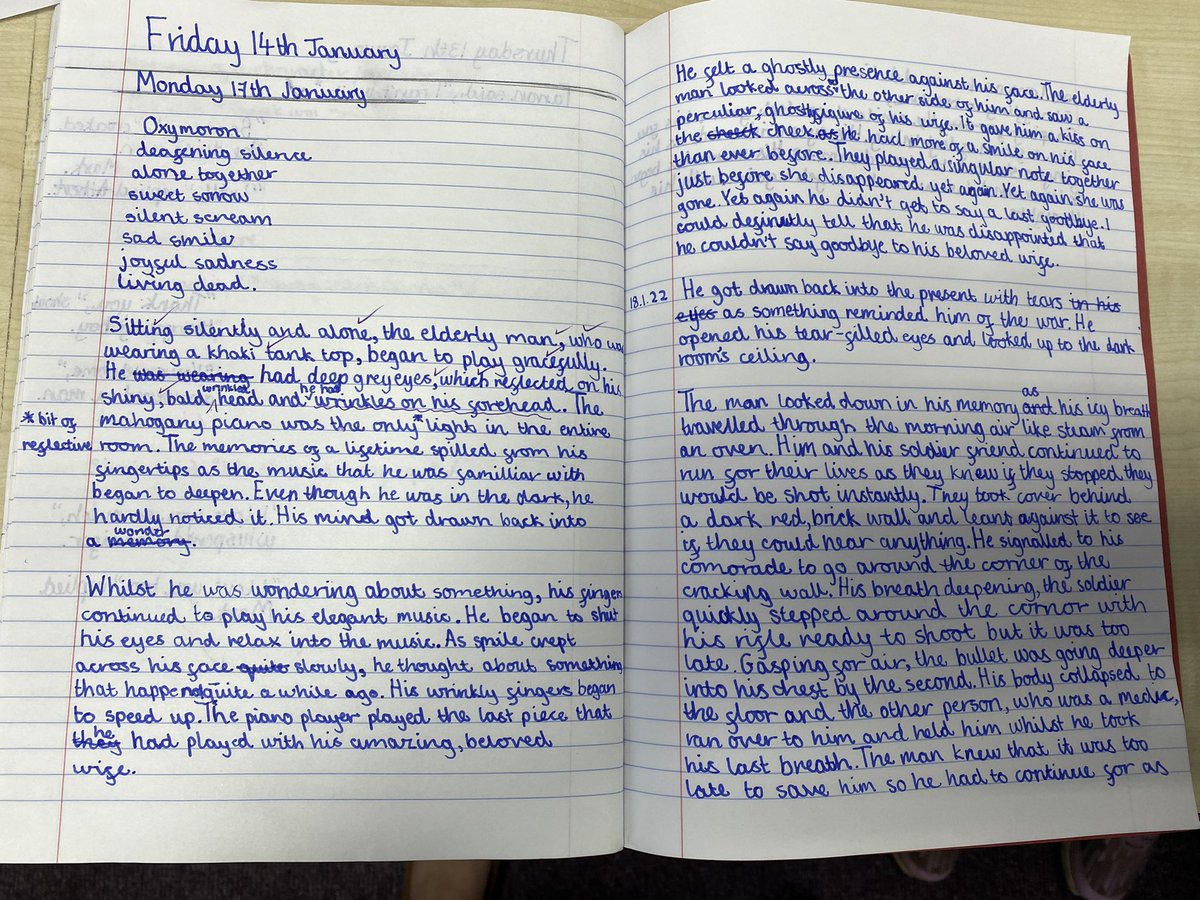 Friday 14th January
Monday 17th January
Oxymoron
deafening silence
alone together
sweet sorrow
silent scream
sad smile
joyful sadness
living dead.
Sitting silently and alone, the elderly man, who was
wearing a khaki tank top, began to play gracefully.
He was wearing had deep grey eyes, which reflected on his
shiny, bald wrinkled head and he had wrinkles on his forehead. The
mahogany piano was the only * light in the entire
* bit of
reflective
room. The memories of a lifetime spilled from his
fingertips as the music that he was familliar with
began to deepen. Even though he was in the dark, he
hardly noticed it. His mind got drawn back into
a memory. wonder
Whilst he was wondering about something, his fingers
continued to play his elegant music. He began to shut
his eyes and relax into the music. As smile crept
across his face quite slowly, he thought about something
that happened quite a while ago. His wrinkly fingers began
to speed up. The piano player played the last piece that
they he had played with his amazing, beloved
wife.
He felt a ghostly presence against his face. The elderly
man looked across the other side of him and saw a
perculiar, ghostly figure of his wife. It gave him a kiss on
the cheek as He had more of a smile on his face
than ever before. They played a singular note together
just before she disappeared yet again. Yet again she was
gone. Yet again he didn't get to say a last goodbye. I
could definutly tell that he was disappointed that
he couldn't say goodbye to his beloved wife.
18.1.22 He got drawn back into the present with tears in his
eyes as something reminded him of the war. He
opened his tear-filled eyes and looked up to the dark
room's ceiling.
The man looked down in his memory and as his icy breath
travelled through the morning air like steam from
an oven. Him and his soldier friend continued to
run for their lives as they knew if they stopped they
would be shot instantly. They took cover behind
a dark red, brick wall and leant against it to see
if they could hear anything. He signalled to his
comorade to go around the corner of the
cracking wall. His breath deepening, the soldier
quickly stepped around the cornor with
his rifle ready to shoot but it was too
late. Gasping for air, the bullet was going deeper
into his chest by the second. His body collapsed to
the floor and the other person, who was a medic,
ran over to him and held him whilst he took
his last breath. The man knew that it was too
late to save him so he had to continue for as